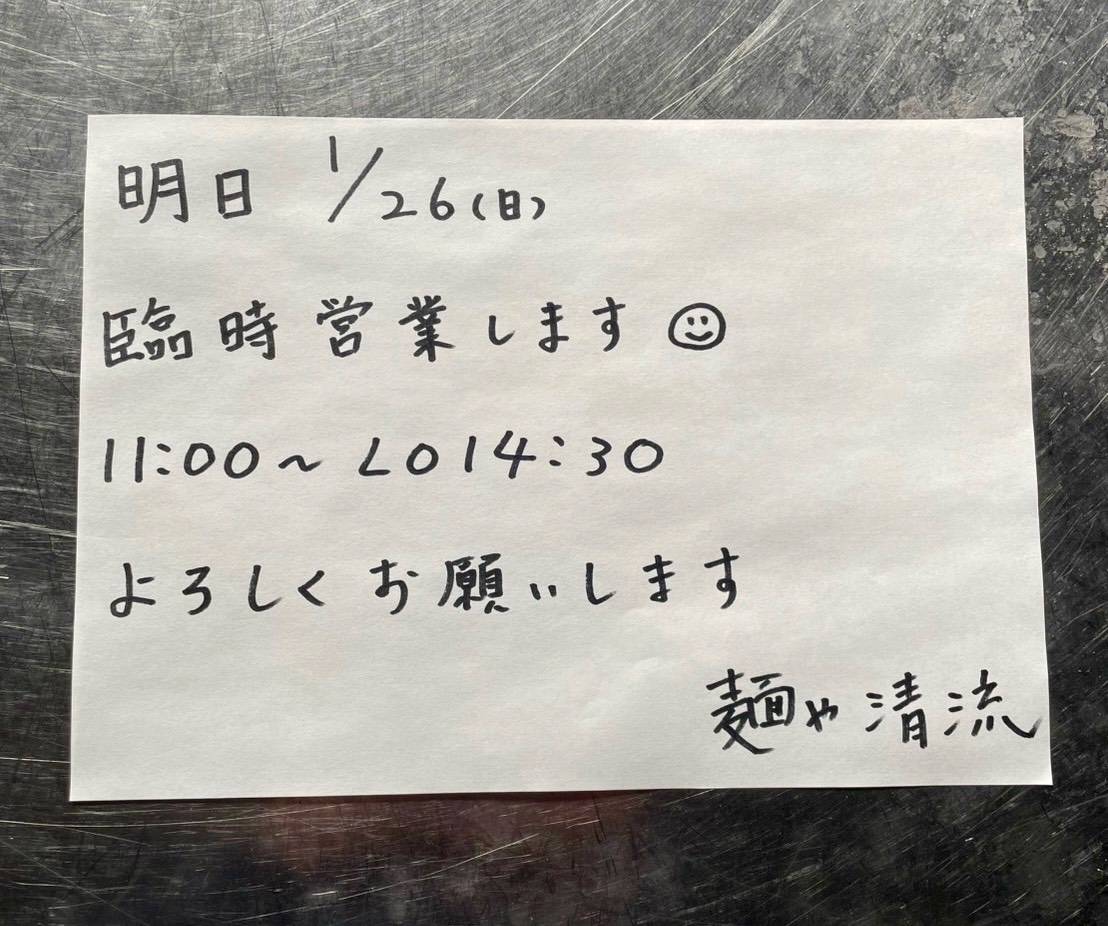 明日 1/26(日)
臨時営業します☺
11:00～LO14:30
よろしくお願いします
麺や清流